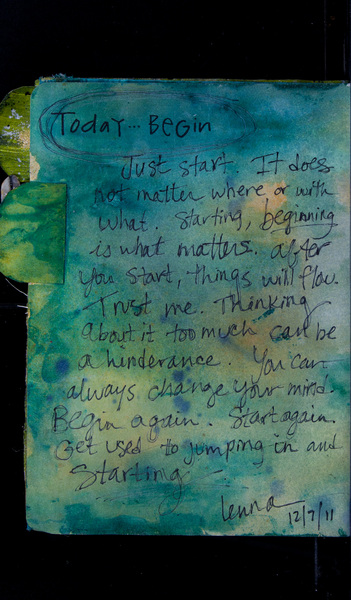 Today... Begin
Just start. It does
not matter where or with
what. Starting, beginning
is what matters. After
you start, things will flow.
Trust me. Thinking
about it too much can be
a hinderance. You can
always change your mind.
Begin again. Start again.
Get used to jumping in and
Starting –
12/7/11